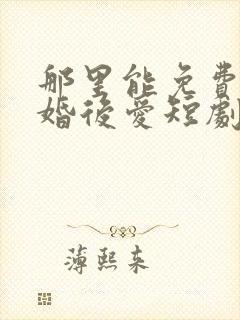 那里能免費
婚後愛短劇
薄熙来